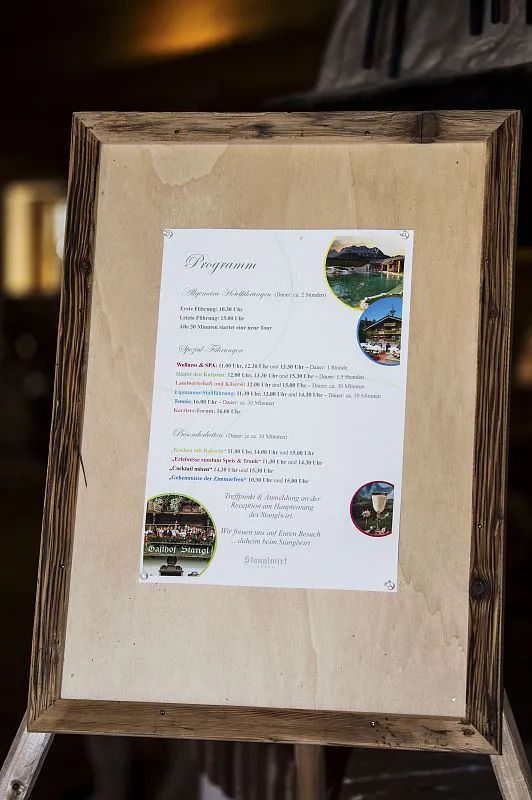 Programm
Allgemeine Hotelführungen (Dauer: ca. 2 Stunden)
Erste Führung: 10.30 Uhr
Letzte Führung: 15.00 Uhr
Alle 30 Minuten startet eine neue Tour
Spezial-Führungen
Wellness & SPA: 11.00 Uhr, 12.30 Uhr und 13.30 Uhr – Dauer: 1 Stunde
Hinter den Kulissen: 12.00 Uhr, 13.30 Uhr und 15.30 Uhr – Dauer: 1,5 Stunden
Landwirtschaft und Käserei: 12.00 Uhr und 15.00 Uhr – Dauer: ca. 30 Minuten
Lipizzaner-Stallführung: 11.30 Uhr, 13.00 Uhr und 14.30 Uhr – Dauer: ca. 30 Minuten
Tennis: 16.00 Uhr – Dauer: ca. 30 Minuten
Karriere-Forum: 16.00 Uhr
Besonderheiten (Dauer: je ca. 30 Minuten)
„Kochen mit Kräutern“ 11.00 Uhr, 14.00 Uhr und 15.00 Uhr
„Erlebnisse rundum Speis & Trank“ 11.30 Uhr und 14.30 Uhr
„Cocktail mixen“ 14.30 Uhr und 15.30 Uhr
„Geheimnisse der Zimmerfeen“ 10.30 Uhr und 15.00 Uhr
Treffpunkt & Anmeldung an der
Reception am Haupteingang
des Stanglwirt.
Wir freuen uns auf Euren Besuch
... daheim beim Stanglwirt
Stanglwirt
Gasthof Stangl